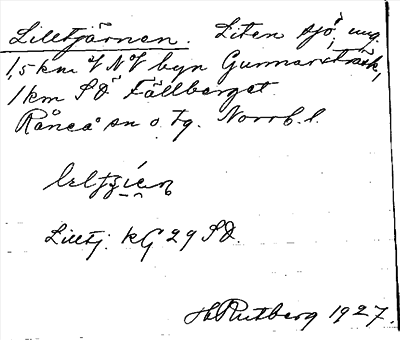 Lilltjärnen. Liten sjö, ung.
1,5 km VNV byn Gunnarsträsk,
1 km SO Fällberget
Råneå sn o. tg. Norrb. l.
Lilltj. KG 29 SO.
H Rutberg 1927.